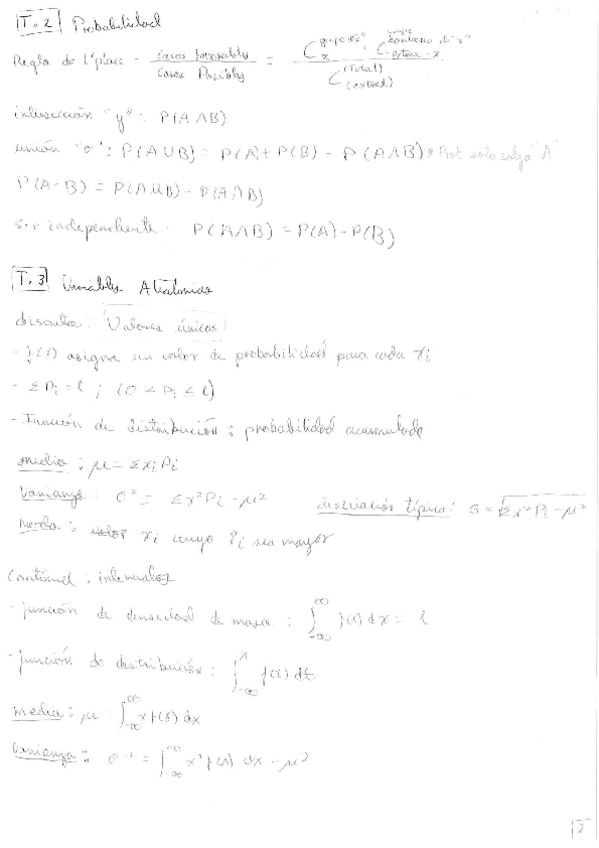 T.2 Probabilidad
Regla de L'place = casos favorables / Casos Posibles = C grupo de "x" x · C contrario de "x" extrae - x / C (total) (extrae)
intersección "y": P(A∩B)
unión "o": P(A∪B) = P(A) + P(B) - P(A∩B) * Prob. solo salga "A"
P(A-B) = P(A∪B) - P(A∩B)
ser independiente: P(A∩B) = P(A) - P(B)
T.3 Variables Aleatorias
discreta: Valores únicos
- f(x) asigna un valor de probabilidad para cada xi
- ΣPi = 1 ; (0 ≤ Pi ≤ 1)
- Función de distribución: probabilidad acumulada
media: μ = Σxi Pi
Varianza: σ² = Σx²Pi - μ² desviación típica: σ = √Σx²Pi - μ²
moda: xi cuyo Pi sea mayor
Continua: intervalos
- función de densidad de masa: ∫_{-∞}^{∞} f(x) dx = 1
- función de distribución: ∫_{-∞}^{x} f(t) dt
media: μ = ∫_{-∞}^{∞} x f(x) dx
Varianza: σ² = ∫_{-∞}^{∞} x² f(x) dx - μ²
2